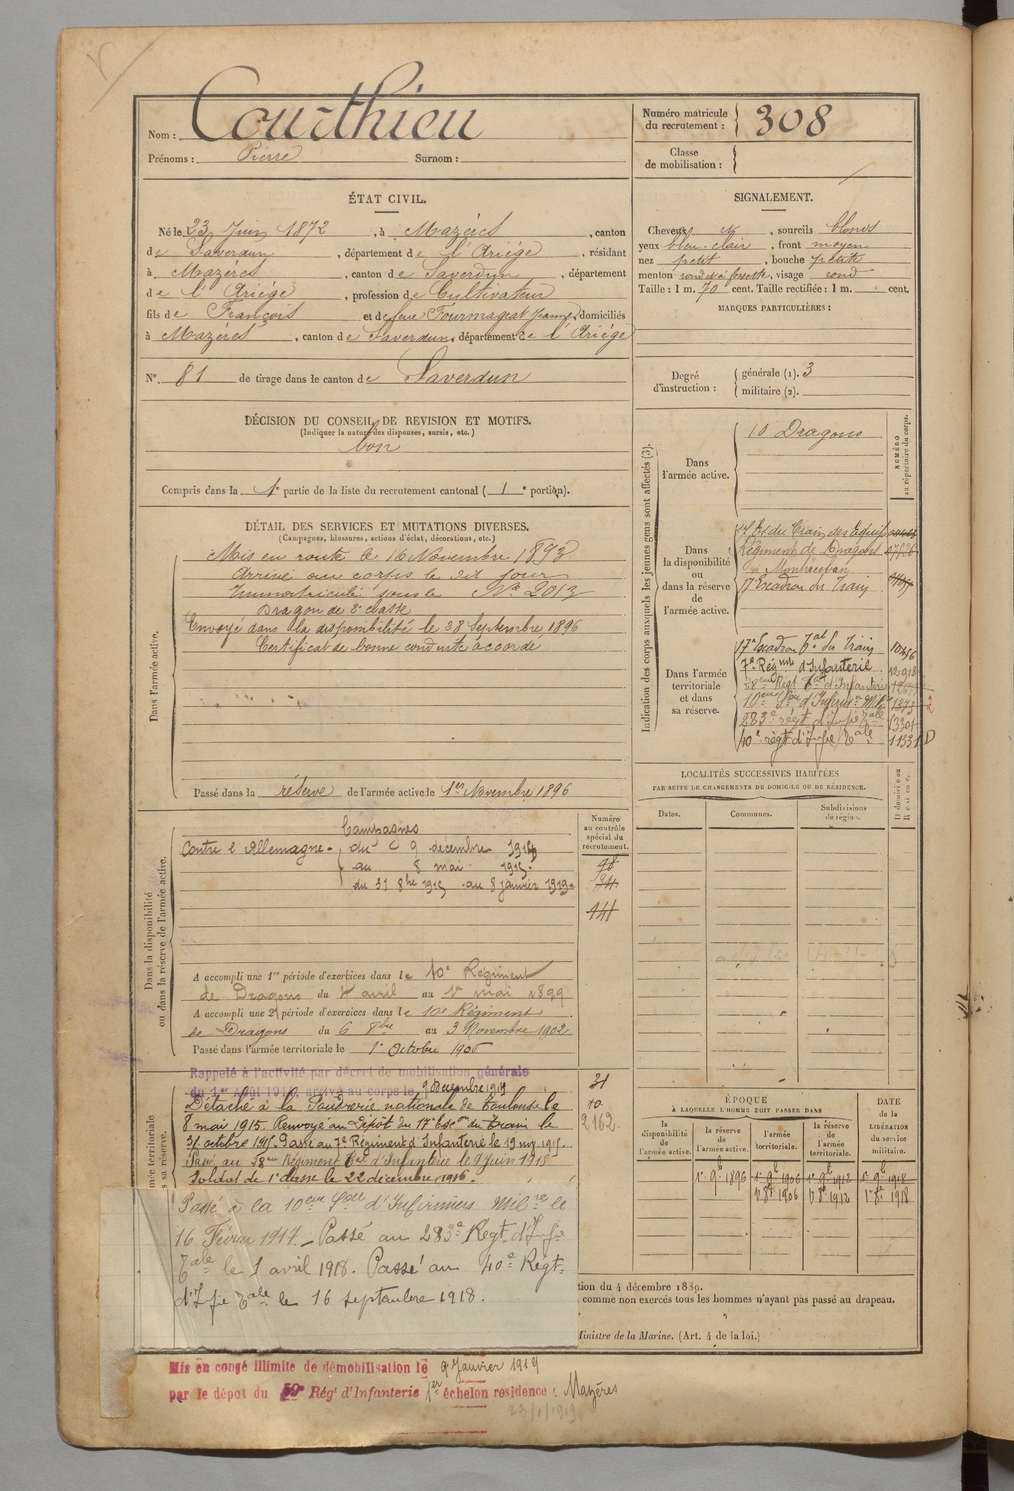 Nom : Courthieu
Prénoms : Pierre Surnom :
Numéro matricule du recrutement : 308
Classe de mobilisation :
ÉTAT CIVIL.
Né le 23 Juin 1872, à Mazères, canton
de Saverdun, département de l'Ariège, résidant
à Mazères, canton de Saverdun, département
de l'Ariège, profession de Cultivateur
fils de François et de feue Fourmageat Jeanne, domiciliés
à Mazères, canton de Saverdun, département de l'Ariège
N° 81 de tirage dans le canton de Saverdun
DÉCISION DU CONSEIL DE REVISION ET MOTIFS.
(Indiquer la nature des dispenses, sursis, etc.)
bon
Compris dans la 1e partie de la liste du recrutement cantonal (1e portion).
DÉTAIL DES SERVICES ET MUTATIONS DIVERSES.
(Campagnes, blessures, actions d'éclat, décorations, etc.)
Dans l'armée active.
Mis en route le 16 Novembre 1893
Arrivé au corps le dit jour
Immatriculé sous le No 2013
Dragon de 2e classe
Envoyé dans la disponibilité le 28 Septembre 1896
Certificat de bonne conduite accordé
Passé dans la réserve de l'armée active le 1er Novembre 1896
Dans la disponibilité
ou dans la réserve de l'armée active.
Campagnes
Contre l'Allemagne - du 9 décembre 1914
au 8 mai 1915.
du 31 8bre 1915 au 8 janvier 1919
Numéro au contrôle spécial du recrutement.
A accompli une 1re période d'exercices dans le 10e Régiment
de Dragons du 4 avril au 1er mai 1899
A accompli une 2e période d'exercices dans le 10e Régiment
de Dragons du 6 8bre au 3 Novembre 1902
Passé dans l'armée territoriale le 1er Octobre 1906
Rappelé à l'activité par décret de mobilisation générale
du 1er Août 1914, arrivé au corps le 9 Décembre 1914
Détaché à la Poudrerie nationale de Toulouse le
8 mai 1915. Renvoyé au Dépôt du 17e Escon du train le
31 octobre 1915. Passé au 7e Régiment d'Infanterie le 19
Passé au 58ème Régiment tal d'Infanterie le 9 juin
Soldat de 1e classe le 22 décembre 1916.
Passé à la 10eme Son d'Infirmiers Milres le
16 Février 1917. - Passé au 283e Regt d'Infie
tale le 1 avril 1918. Passé au 40e Régt
d'Infie tale le 16 septembre 1918.
31
10
2162
Mis en congé illimité de démobilisation le 9 Janvier 1919
par le dépôt du 59e Régt d'Infanterie 1er échelon résidence : Mazères
23/1/1919
SIGNALEMENT.
Cheveux, sourcils blonds
yeux bleu clair, front moyen
nez petit, bouche petite
menton rond et à fossette, visage rond
Taille : 1 m. 70 cent. Taille rectifiée : 1 m. cent.
MARQUES PARTICULIÈRES :
Degré d'instruction : générale (1). 3
militaire (2).
Indication des corps auxquels les jeunes gens sont affectés (3).
NUMÉRO au répertoire du corps.
Dans l'armée active. 10 Dragons
Dans la disponibilité ou dans la réserve de l'armée active.
17 Esc. du Train des Equip.
Régiment de Dragons
à Montauban
17 Escadron du Train
Dans l'armée territoriale et dans sa réserve.
17e Escadron Tal du Train
7e Régmt d'Infanterie
10ème Son d'Infirmers Milres
283e régt d'Infie Tale
40e régt d'Infie Tale
LOCALITÉS SUCCESSIVES HABITÉES
PAR SUITE DE CHANGEMENTS DE DOMICILE OU DE RÉSIDENCE.
Dates. Communes. Subdivisions de région. D domicile ou R résidence.
ÉPOQUE
À LAQUELLE L'HOMME DOIT PASSER DANS
DATE de la LIBÉRATION du service militaire.
la disponibilité de l'armée active. la réserve de l'armée active. l'armée territoriale. la réserve de l'armée territoriale.
1er 9bre 1896 1er 9bre 1906 1er 9bre 1912 1er 9bre 1918
1er 8bre 1906 1er 8bre 1912 1er 8bre 1918
tion du 4 décembre 1889.
comme non exercés tous les hommes n'ayant pas passé au drapeau.
Ministre de la Marine. (Art. 4 de la loi.)